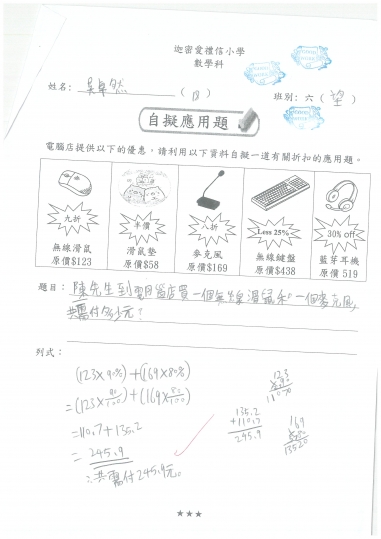 迦密愛禮信小學
數學科
姓名：吳卓然 ( 18 ) 班別：六 ( 望 )
自擬應用題
電腦店提供以下的優惠，請利用以下資料自擬一道有關折扣的應用題。
九折 半價 八折 Less 25% 30% off
無線滑鼠 滑鼠墊 麥克風 無線鍵盤 藍芽耳機
原價$123 原價$58 原價$169 原價$438 原價 519
題目：陳先生到電腦店買一個無線滑鼠和一個麥克風,
共需付多少元？
列式：
(123×90%)+(169×80%)
=(123×90/100)+(169×80/100)
=110.7+135.2
=245.9
∴共需付245.9元。
135.2
+110.7
245.9
★★★